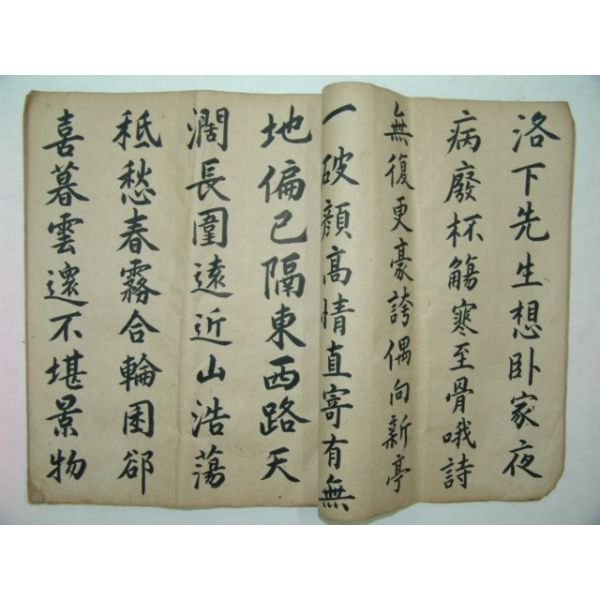 洛下先生想卧家夜
病廢杯觴寒至骨哦詩
無復更豪誇偶向新亭
一破顔高情直寄有無
地偏已隔東西路天
濶長圍遠近山浩蕩
秪愁春霧合輪囷郤
喜暮雲還不堪景物